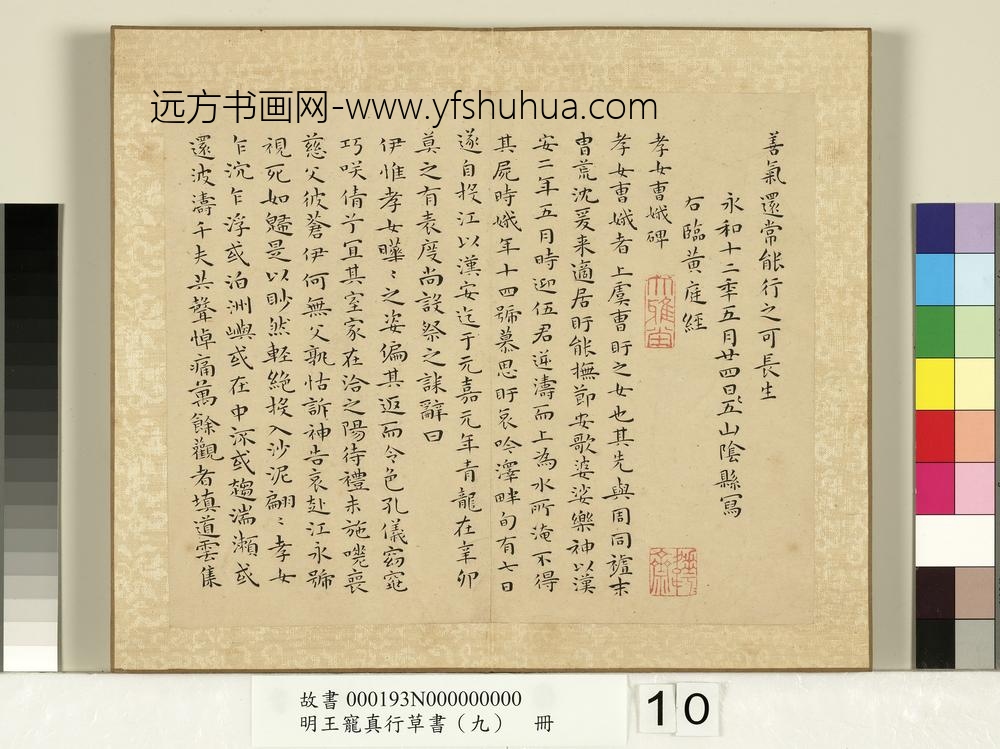 远方书画网-www.yfshuhua.com
善氣還常能行之可長生
永和十二年五月廿四日五山陰縣寫
右臨黃庭經
孝女曹娥碑
孝女曹娥者上虞曹盱之女也其先與周同祖末
胄荒沈爰来適居盱能撫節安歌婆娑樂神以漢
安二年五月時迎伍君逆濤而上為水所淹不得
其屍時娥年十四號慕思盱哀吟澤畔旬有七日
遂自投江以漢安迄于元嘉元年青龍在辛卯
莫之有表度尚設祭之誄辭曰
伊惟孝女曄〻之姿偏其返而令色孔儀窈窕
巧咲倩兮宜其室家在洽之陽待禮未施嗟喪
慈父彼蒼伊何無父孰怙訴神告哀赴江永號
視死如歸是以眇然輕絶投入沙泥翩〻孝女
乍沉乍浮或泊洲嶼或在中流或趨湍瀨或
還波濤千夫共聲悼痛萬餘觀者填道雲集
故書 000193N000000000
明王寵真行草書（九） 冊
10